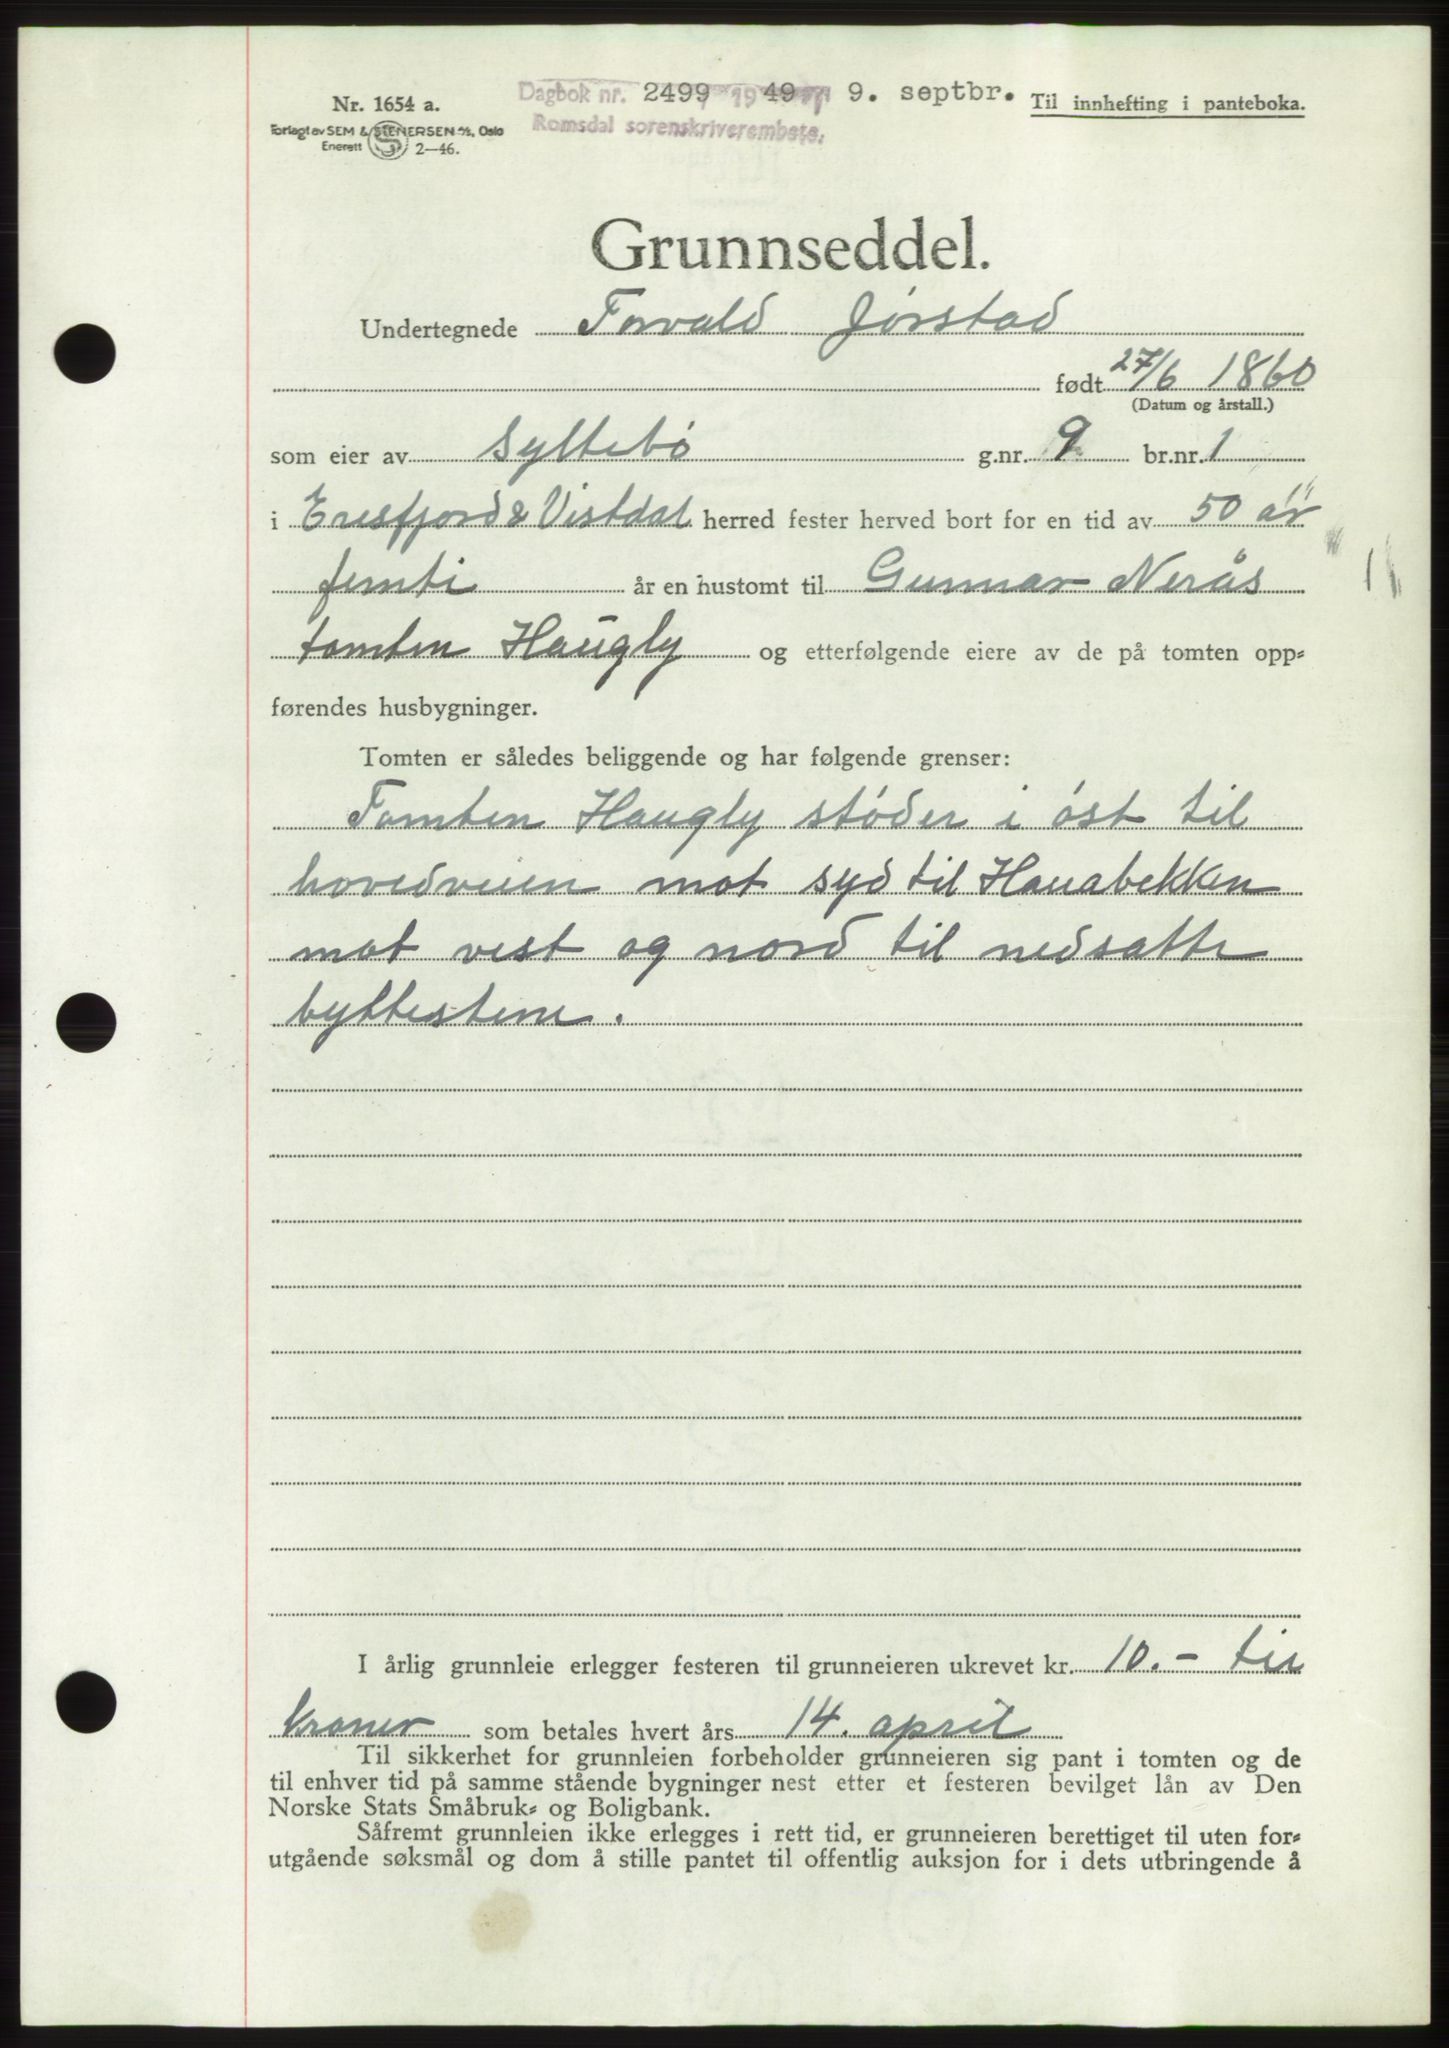 Nr. 1654 a.
Forlagt av SEM & STENERSEN A/S, Oslo
Enerett S 2—46.
Dagbok nr. 2499 1949 9. septbr.
Romsdal sorenskriverembete.
Til innhefting i panteboka.
Grunnseddel.
Undertegnede Torvald Jørstad
født 27/6 1860
(Datum og årstall.)
som eier av Syltebø g.nr. 9 br.nr. 1
i Eresfjord & Vistdal herred fester herved bort for en tid av 50 år
femti år en hustomt til Gunnar Nerås
tomten Haugly og etterfølgende eiere av de på tomten opp-
førendes husbygninger.
Tomten er således beliggende og har følgende grenser:
Tomten Haugly støder i øst til
hovedveien mot syd til Hauabekken
mot vest og nord til nedsatte
byttestene.
I årlig grunnleie erlegger festeren til grunneieren ukrevet kr. 10.- tir
kroner som betales hvert års 14. april
Til sikkerhet for grunnleien forbeholder grunneieren sig pant i tomten og de
til enhver tid på samme stående bygninger nest etter et festeren bevilget lån av Den
Norske Stats Småbruk- og Boligbank.
Såfremt grunnleien ikke erlegges i rett tid, er grunneieren berettiget til uten for-
utgående søksmål og dom å stille pantet til offentlig auksjon for i dets utbringende å